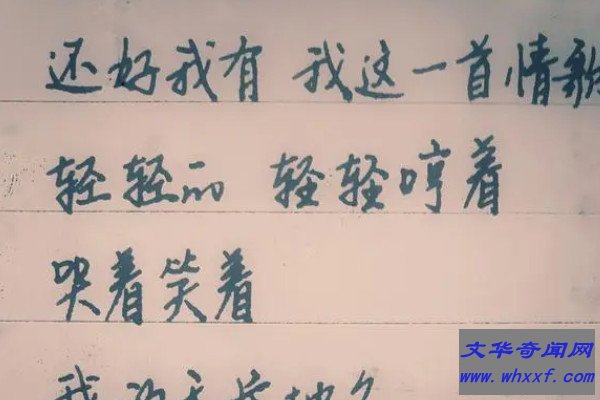 还好我有 我这一首情歌
轻轻的 轻轻哼着
哭着笑着
我的天长地久
文华奇闻网
www.whxxf.com